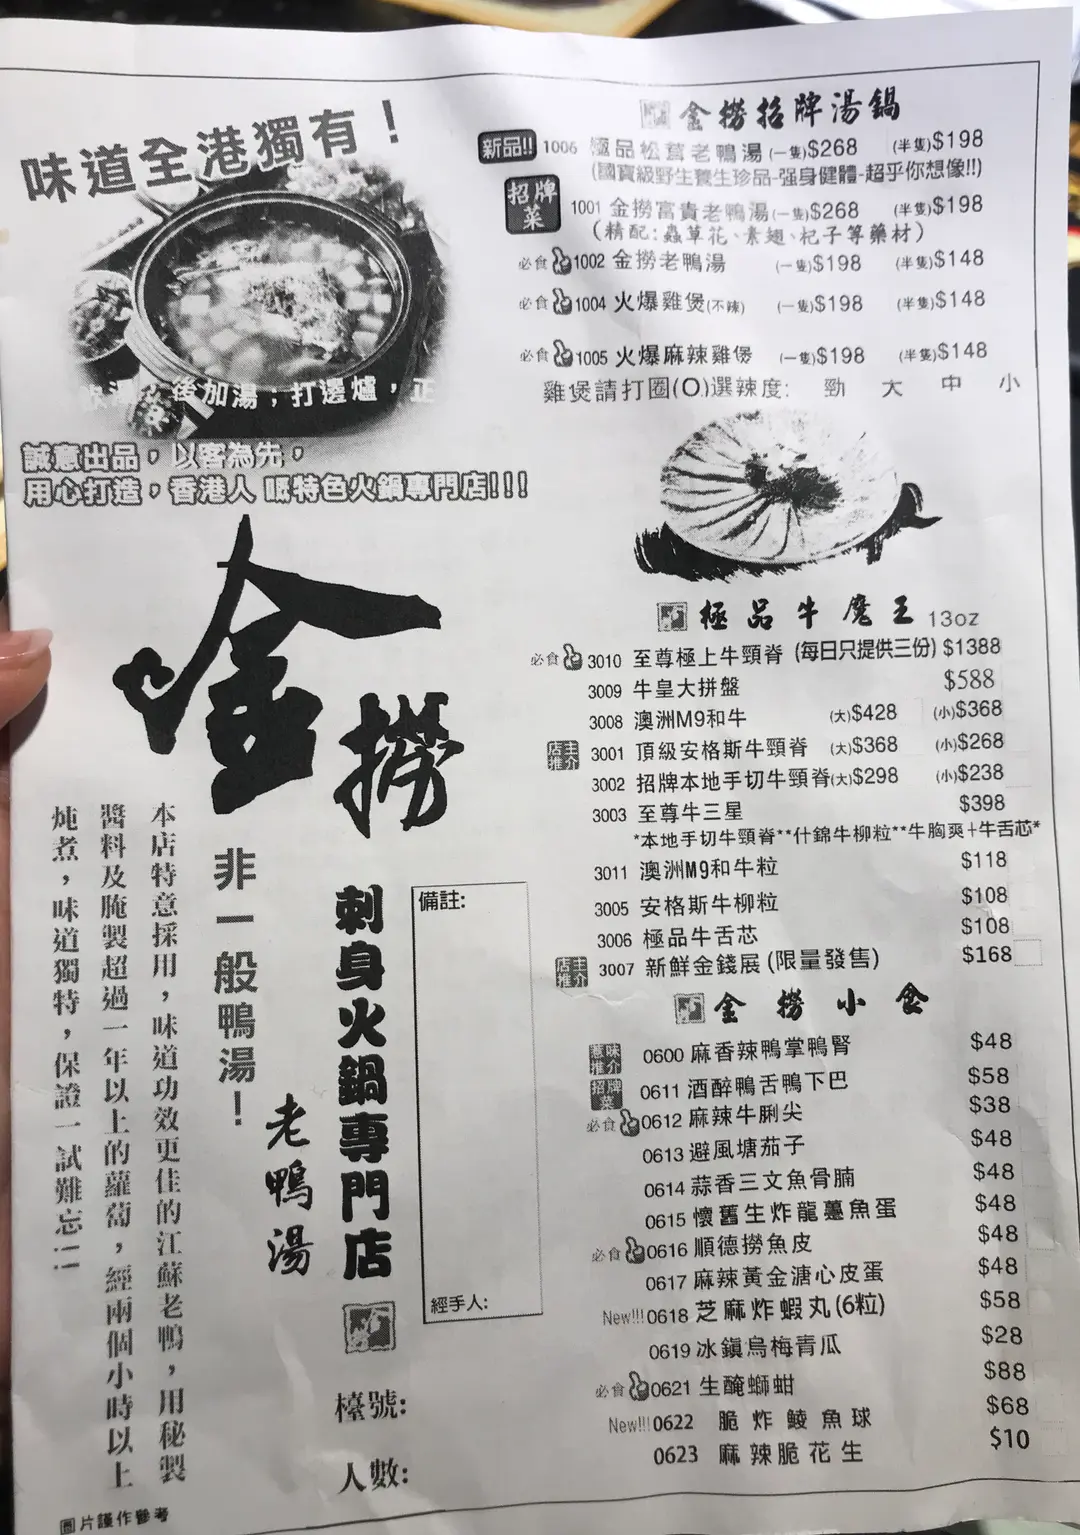 味道全港獨有！
後加湯；打邊爐，正
誠意出品，以客為先，
用心打造，香港人 嘅特色火鍋專門店!!!
金撈
刺身火鍋專門店
非一般鴨湯！
老鴨湯
本店特意採用，味道功效更佳的江蘇老鴨，用秘製
醬料及腌製超過一年以上的蘿蔔，經兩個小時以上
炖煮，味道獨特，保證一試難忘!!
備註:
經手人:
檯號:
人數:
圖片謹作參考
金撈招牌湯鍋
新品!! 1006 極品松茸老鴨湯(一隻)$268 (半隻)$198
(國寶級野生養生珍品-强身健體-超乎你想像!!)
招牌菜 1001 金撈富貴老鴨湯(一隻)$268 (半隻)$198
(精配:蟲草花、素翅、杞子等藥材)
必食 1002 金撈老鴨湯 (一隻)$198 (半隻)$148
必食 1004 火爆雞煲(不辣) (一隻)$198 (半隻)$148
必食 1005 火爆麻辣雞煲 (一隻)$198 (半隻)$148
雞煲請打圈(O)選辣度: 勁 大 中 小
極品牛魔王 13oz
必食 3010 至尊極上牛頸脊 (每日只提供三份) $1388
3009 牛皇大拼盤 $588
3008 澳洲M9和牛 (大)$428 (小)$368
店主推介 3001 頂級安格斯牛頸脊 (大)$368 (小)$268
3002 招牌本地手切牛頸脊(大)$298 (小)$238
3003 至尊牛三星 $398
*本地手切牛頸脊**什錦牛柳粒**牛胸爽+牛舌芯*
3011 澳洲M9和牛粒 $118
3005 安格斯牛柳粒 $108
3006 極品牛舌芯 $108
店主推介 3007 新鮮金錢展 (限量發售) $168
金撈小食
惹味推介 0600 麻香辣鴨掌鴨腎 $48
招牌菜 0611 酒醉鴨舌鴨下巴 $58
必食 0612 麻辣牛脷尖 $38
0613 避風塘茄子 $48
0614 蒜香三文魚骨腩 $48
0615 懷舊生炸龍躉魚蛋 $48
必食 0616 順德撈魚皮 $48
0617 麻辣黃金溏心皮蛋 $48
New!!! 0618 芝麻炸蝦丸(6粒) $58
0619 冰鎮烏梅青瓜 $28
必食 0621 生醃螄蚶 $88
New!!! 0622 脆炸鯪魚球 $68
0623 麻辣脆花生 $10